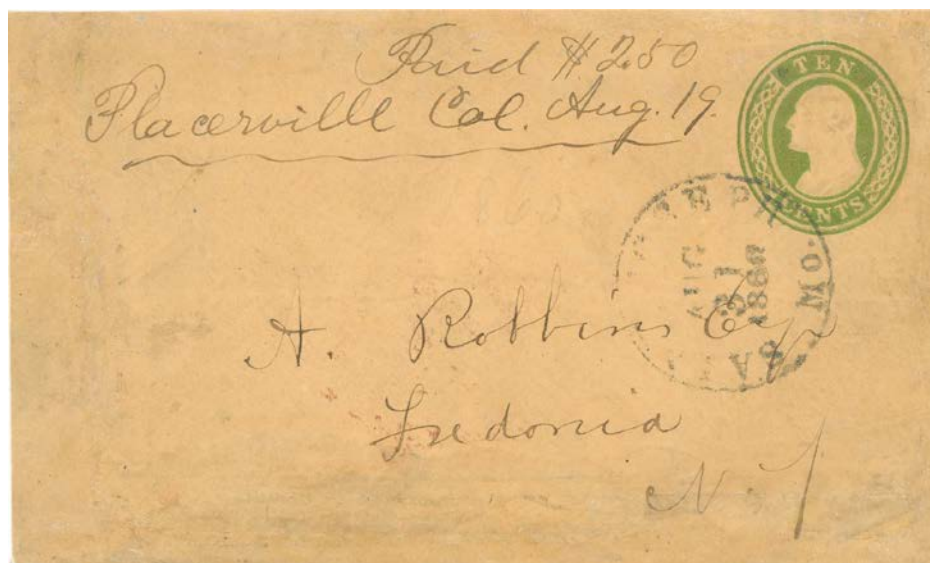 Paid $2.50
Placerville Cal. Aug. 19.
TEN
CENTS
AUG
31
1860
MO.
A. Robbins Esq
Fredonia
N. Y